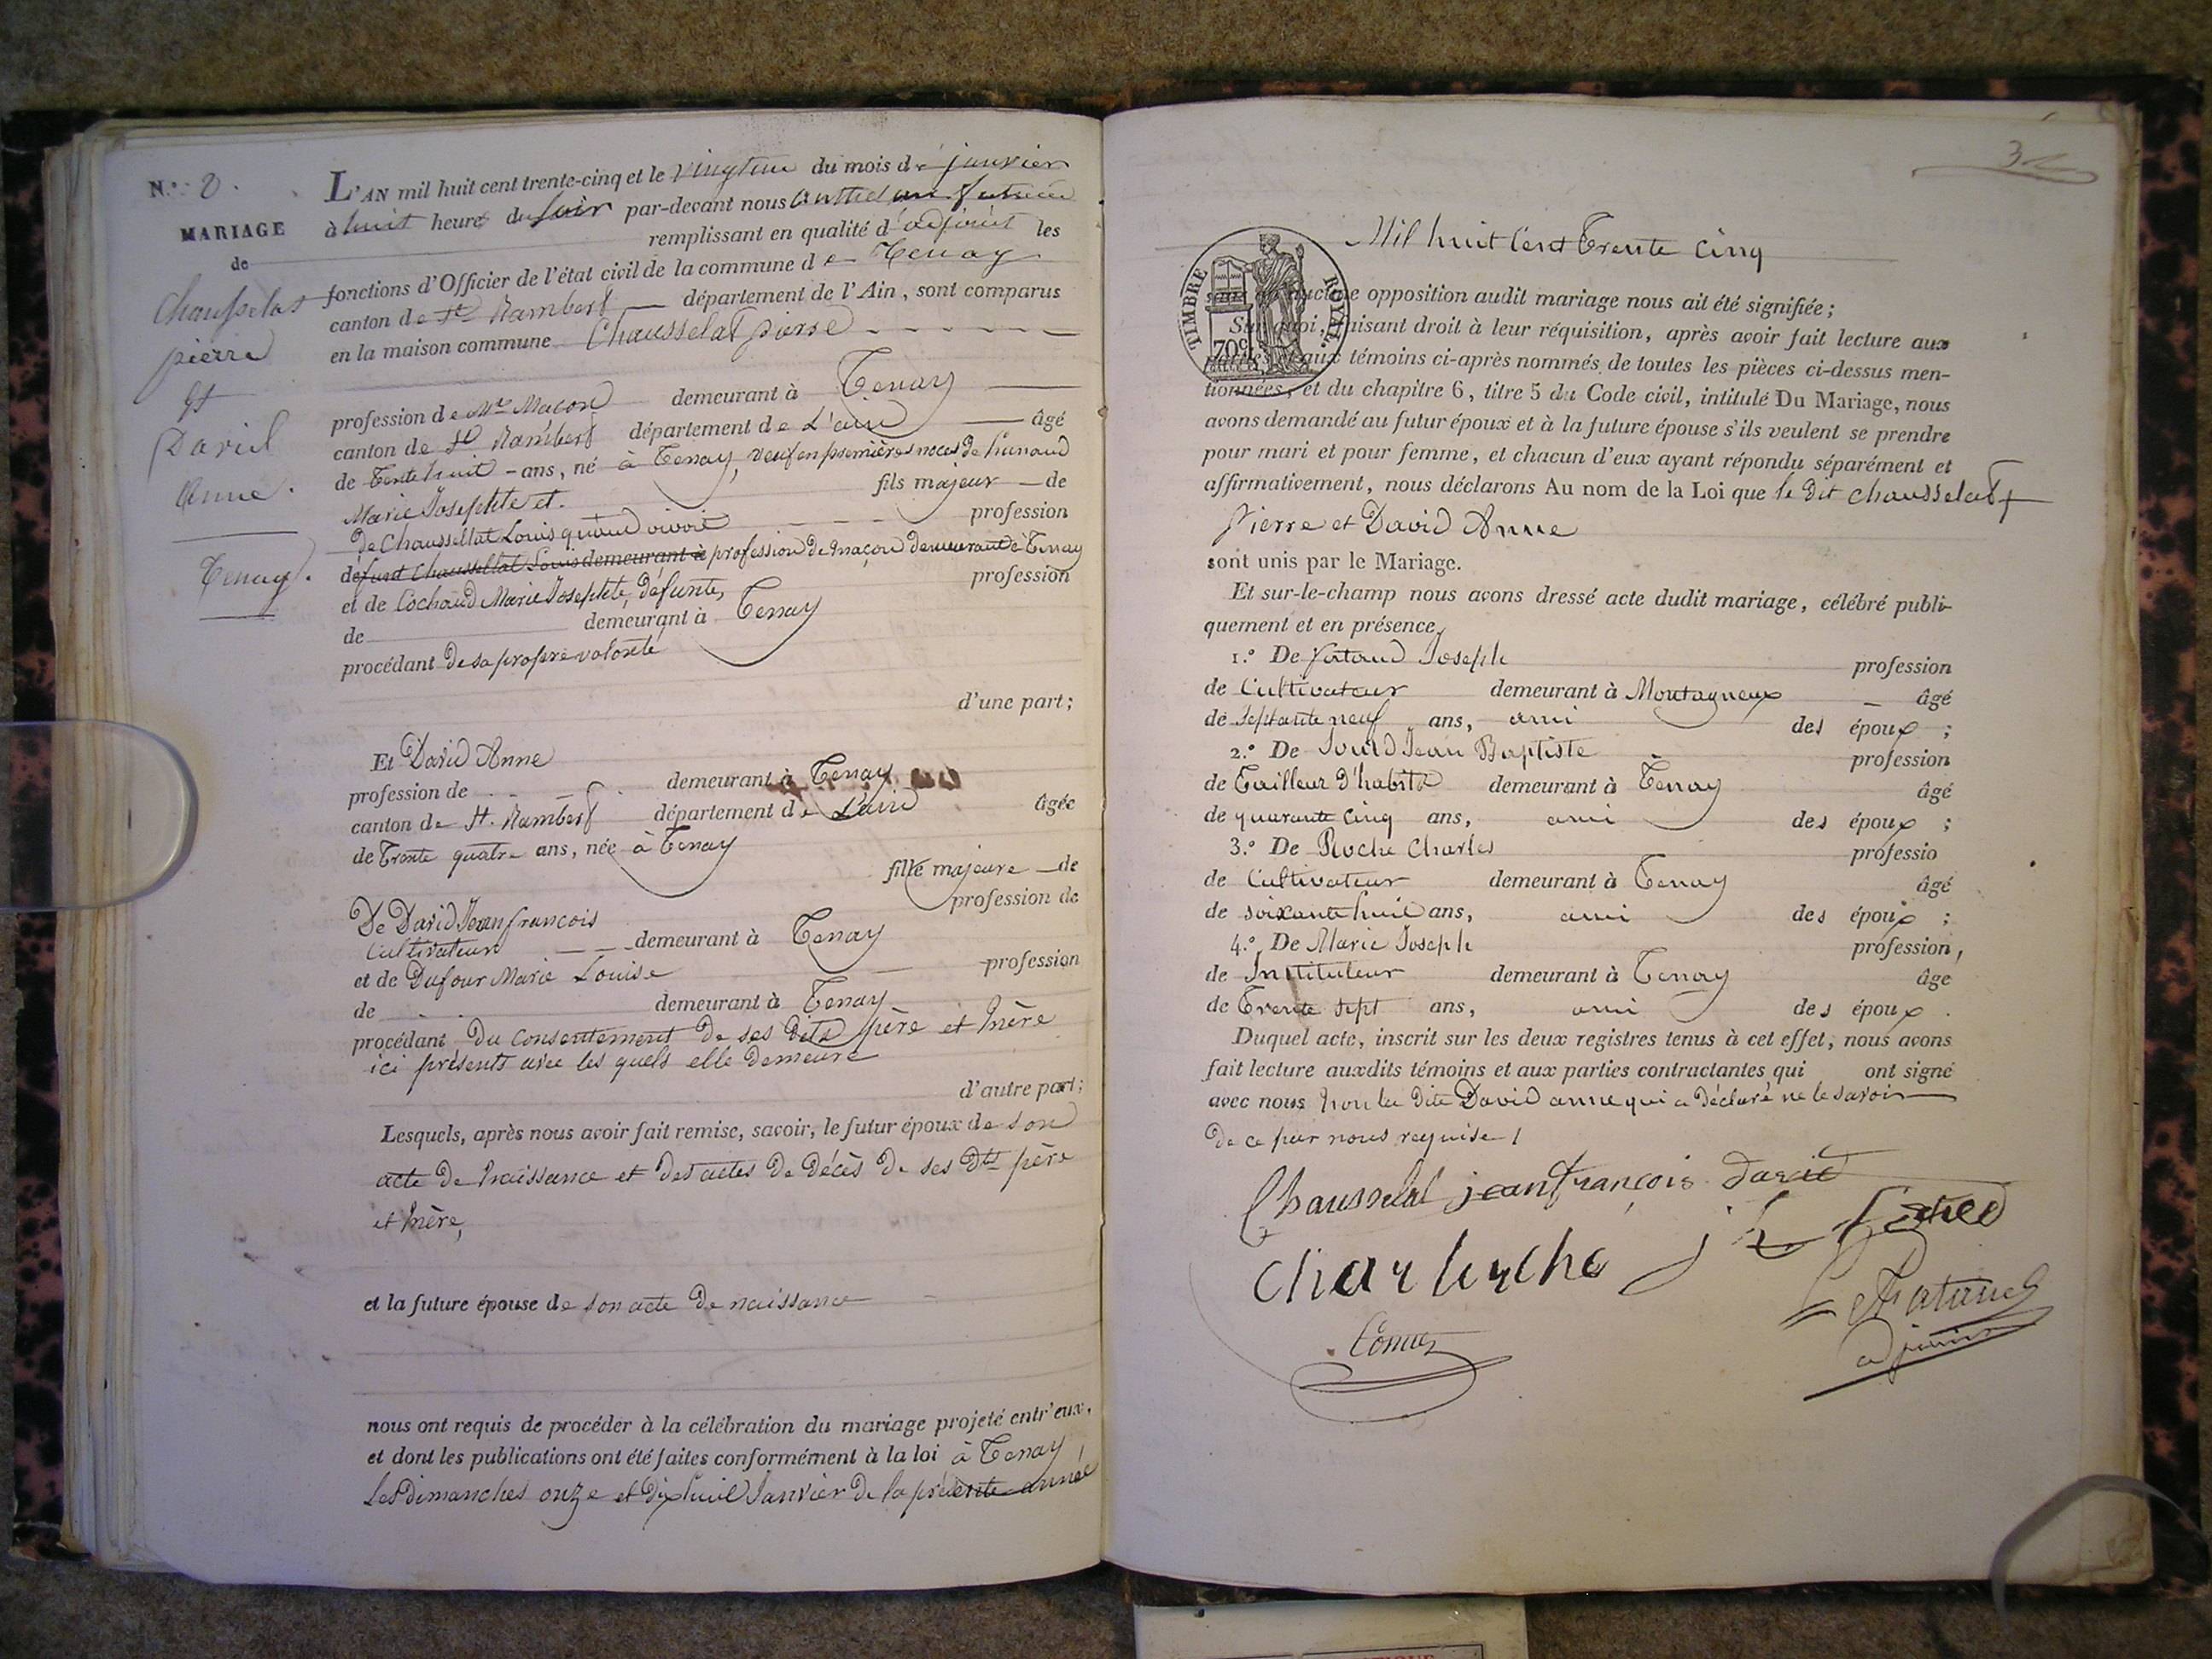 N.º 2.
MARIAGE
de
Chausselat
pierre
Et
David
Anne.
Tenay.
L'AN mil huit cent trente-cinq et le vingt un du mois de janvier
à huit heures du soir par-devant nous
remplissant en qualité d'adjoint les
fonctions d'Officier de l'état civil de la commune de Tenay
canton de St Rambert département de l'Ain, sont comparus
en la maison commune Chausselat pierre
profession de Me Maçon demeurant à Tenay
canton de St Rambert département de L'ain âgé
de Trente huit ans, né à Tenay, veuf en premières noces de
Marie Josephte et. fils majeur de
De Chausselat Louis quand vivoit profession
défunt Chausselat Louis demeurant à profession de maçon demeurant à Tenay
et de Cochaud Marie Josephte, défunte, profession
de demeurant à Tenay
procédant de sa propre volonté
d'une part;
Et David Anne
profession de demeurant à Tenay
canton de St. Rambert département de L'ain âgée
de Trente quatre ans, née à Tenay
fille majeure de
De David Jean françois profession de
Cultivateur demeurant à Tenay
et de Dufour Marie Louise profession
de demeurant à Tenay
procédant du consentement de ses dits père et mère
ici présents avec les quels elle demeure
d'autre part;
Lesquels, après nous avoir fait remise, savoir, le futur époux de son
acte de naissance et des actes de décès de ses dts père
et mère,
et la future épouse de son acte de naissance
nous ont requis de procéder à la célébration du mariage projeté entr'eux,
et dont les publications ont été faites conformément à la loi à Tenay
les dimanches onze et dix huit Janvier de la présente année
Mil huit Cent Trente Cinq
TIMBRE ROYAL
70c.
sans qu'aucune opposition audit mariage nous ait été signifiée;
Sur quoi, faisant droit à leur réquisition, après avoir fait lecture aux
parties et aux témoins ci-après nommés de toutes les pièces ci-dessus men-
tionnées, et du chapitre 6, titre 5 du Code civil, intitulé Du Mariage, nous
avons demandé au futur époux et à la future épouse s'ils veulent se prendre
pour mari et pour femme, et chacun d'eux ayant répondu séparément et
affirmativement, nous déclarons Au nom de la Loi que le dit Chausselat
Pierre et David Anne
sont unis par le Mariage.
Et sur-le-champ nous avons dressé acte dudit mariage, célébré publi-
quement et en présence,
1.º De Joseph profession
de Cultivateur demeurant à Montagneux âgé
de Septante neuf ans, ami des époux ;
2.º De Jean Baptiste profession
de Tailleur d'habits demeurant à Tenay âgé
de quarante cinq ans, ami des époux ;
3.º De Roche Charles professio
de Cultivateur demeurant à Tenay âgé
de soixante huit ans, ami des époux ;
4.º De Marie Joseph profession,
de Instituteur demeurant à Tenay âge
de Trente sept ans, ami des époux .
Duquel acte, inscrit sur les deux registres tenus à cet effet, nous avons
fait lecture auxdits témoins et aux parties contractantes qui ont signé
avec nous non la dite David anne qui a déclaré ne le savoir
de ce par nous requise /
Chausselat jean françois david
adjoint